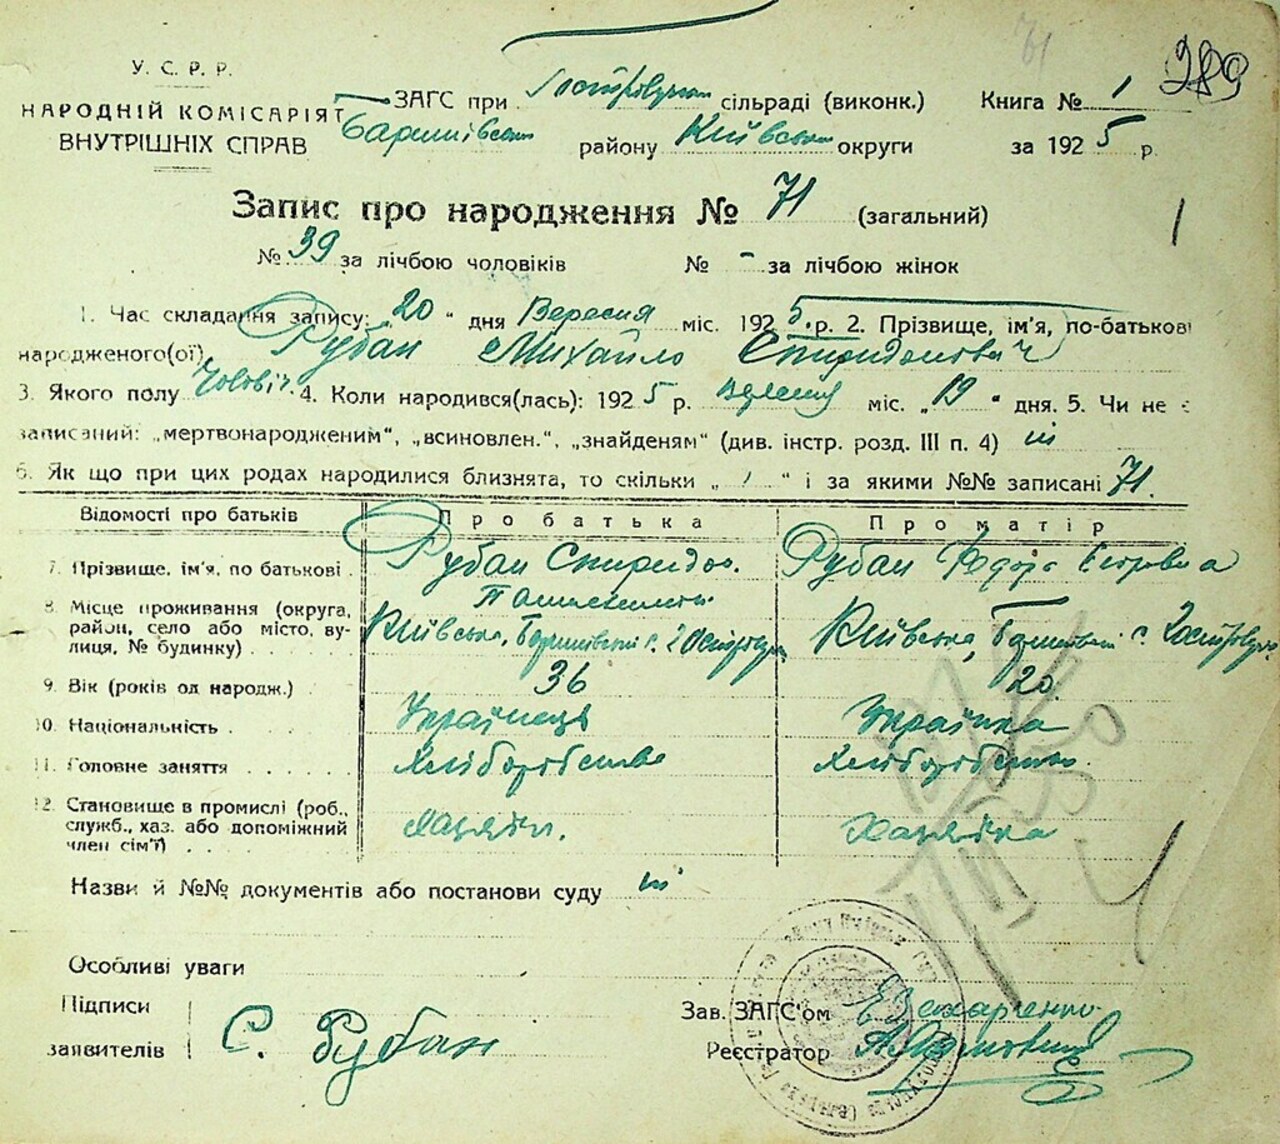 71
289
У. С. Р. Р.
НАРОДНІЙ КОМІСАРІЯТ
ВНУТРІШНІХ СПРАВ
ЗАГС при сільраді (виконк.) Книга № 1
Баришівськ району Київськ округи за 1925 р.
Запис про народження № 71 (загальний)
№ 39 за лічбою чоловіків № - за лічбою жінок
1. Час складання запису: „20 " дня Вересня міс. 1925 р. 2. Прізвище, ім'я, по-батькові
народженого(ої) Рубан Михайло Спиридонович
3. Якого полу Чолові. 4. Коли народився(лась): 1925 р. вересня міс. „19 " дня. 5. Чи не є
записаний: „мертвонародженим", „всиновлен.", „знайденям" (див. інстр. розд. III п. 4) ні
6. Як що при цих родах народилися близнята, то скільки „ " і за якими №№ записані 71.
Відомості про батьків Про батька Про матір
7. Прізвище, ім'я, по батькові Рубан Спиридон. Рубан Федора Єгоровна
8. Місце проживання (округа, район, село або місто, вулиця, № будинку) Київська, с. Київська, с.
9. Вік (років од народж.) 36 20
10. Національність Українець Українка
11. Головне заняття Хліборобство Хліборобство
12. Становище в промислі (роб., служб., хаз. або допоміжний член сім'ї) Хазяїн. Хазяйка
Назви й №№ документів або постанови суду ні
Особливі уваги
Підписи
заявителів С. Рубан
Зав. ЗАГС'ом Захарченко
Реєстратор